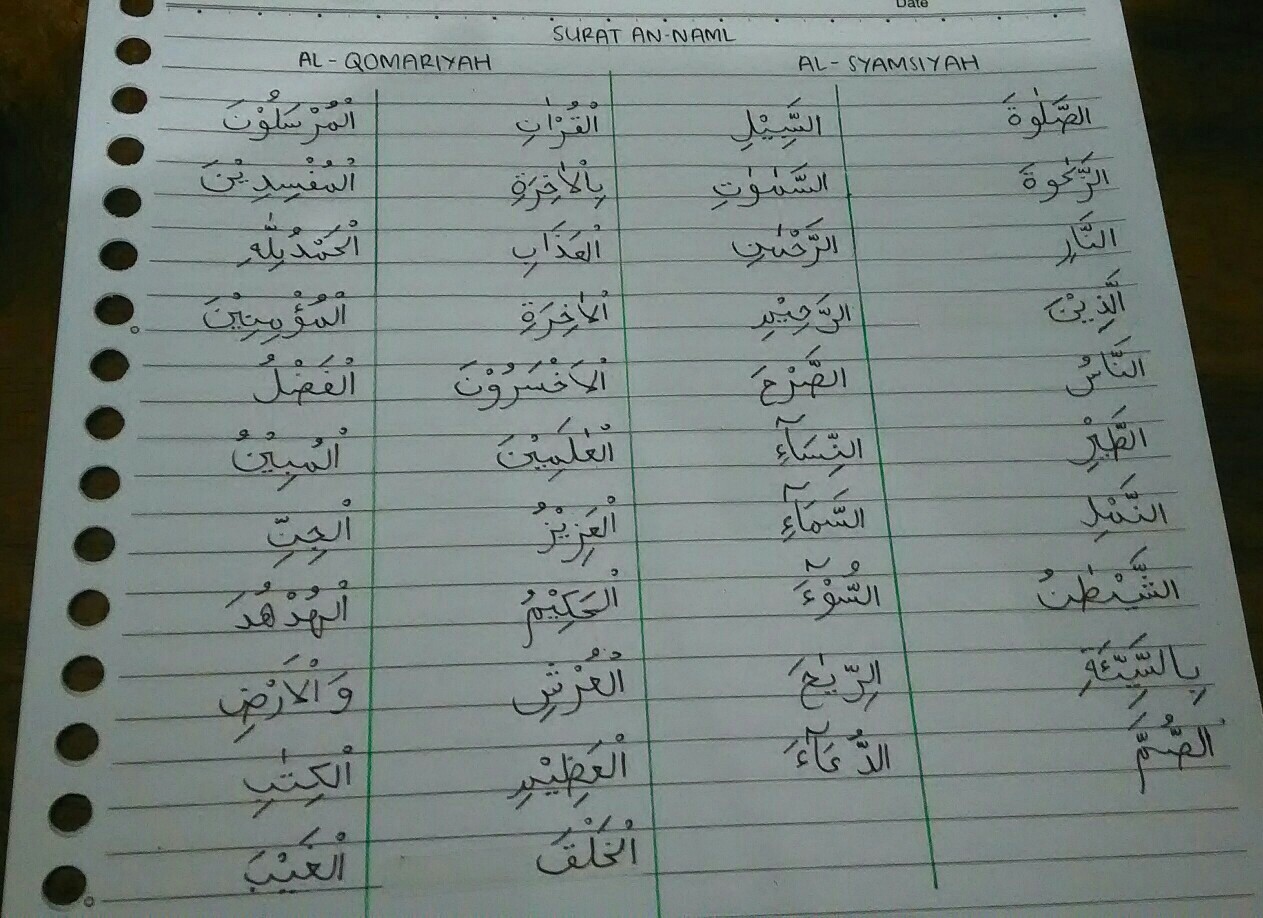 Date
SURAT AN-NAML
AL - QOMARIYAH AL - SYAMSIYAH
الصَّلٰوةَ السَّبِيْلِ الْقُرْاٰنِ الْمُرْسَلُوْنَ
الزَّكٰوةَ السَّمٰوٰتِ بِالْاٰخِرَةِ الْمُفْسِدِيْنَ
النَّارِ الرَّحْمٰنِ الْعَذَابِ الْحَمْدُ لِلّٰهِ
الَّذِيْنَ الرَّحِيْمِ الْاٰخِرَةِ الْمُؤْمِنِيْنَ
النَّاسُ الصَّرْحَ الْاَخْسَرُوْنَ الْفَضْلُ
الطَّيْرِ النِّسَآءِ الْعٰلَمِيْنَ الْمُبِيْنُ
النَّمْلِ السَّمَآءِ الْعَزِيْزُ الْجِنِّ
الشَّيْطٰنُ السُّوْٓءَ الْحَكِيْمُ الْهُدْهُدَ
بِالسَّيِّئَةِ الرِّيٰحَ الْعَرْشِ وَالْاَرْضِ
الصُّمَّ الدُّعَآءَ الْعَظِيْمِ الْكِتٰبِ
الْخَلْقَ الْغَيْبَ